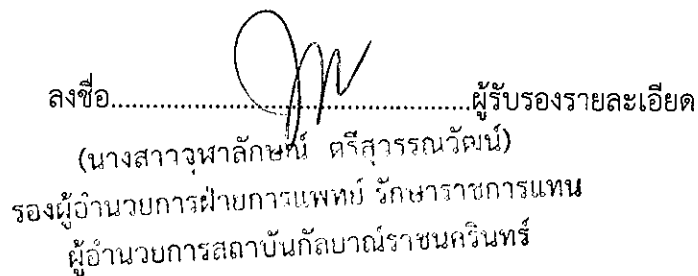 ลงชื่อ................................................ผู้รับรองรายละเอียด
(นางสาวจุฬาลักษณ์ ตรีสุวรรณวัฒน์)
รองผู้อำนวยการฝ่ายการแพทย์ รักษาราชการแทน
ผู้อำนวยการสถาบันกัลยาณ์ราชนครินทร์